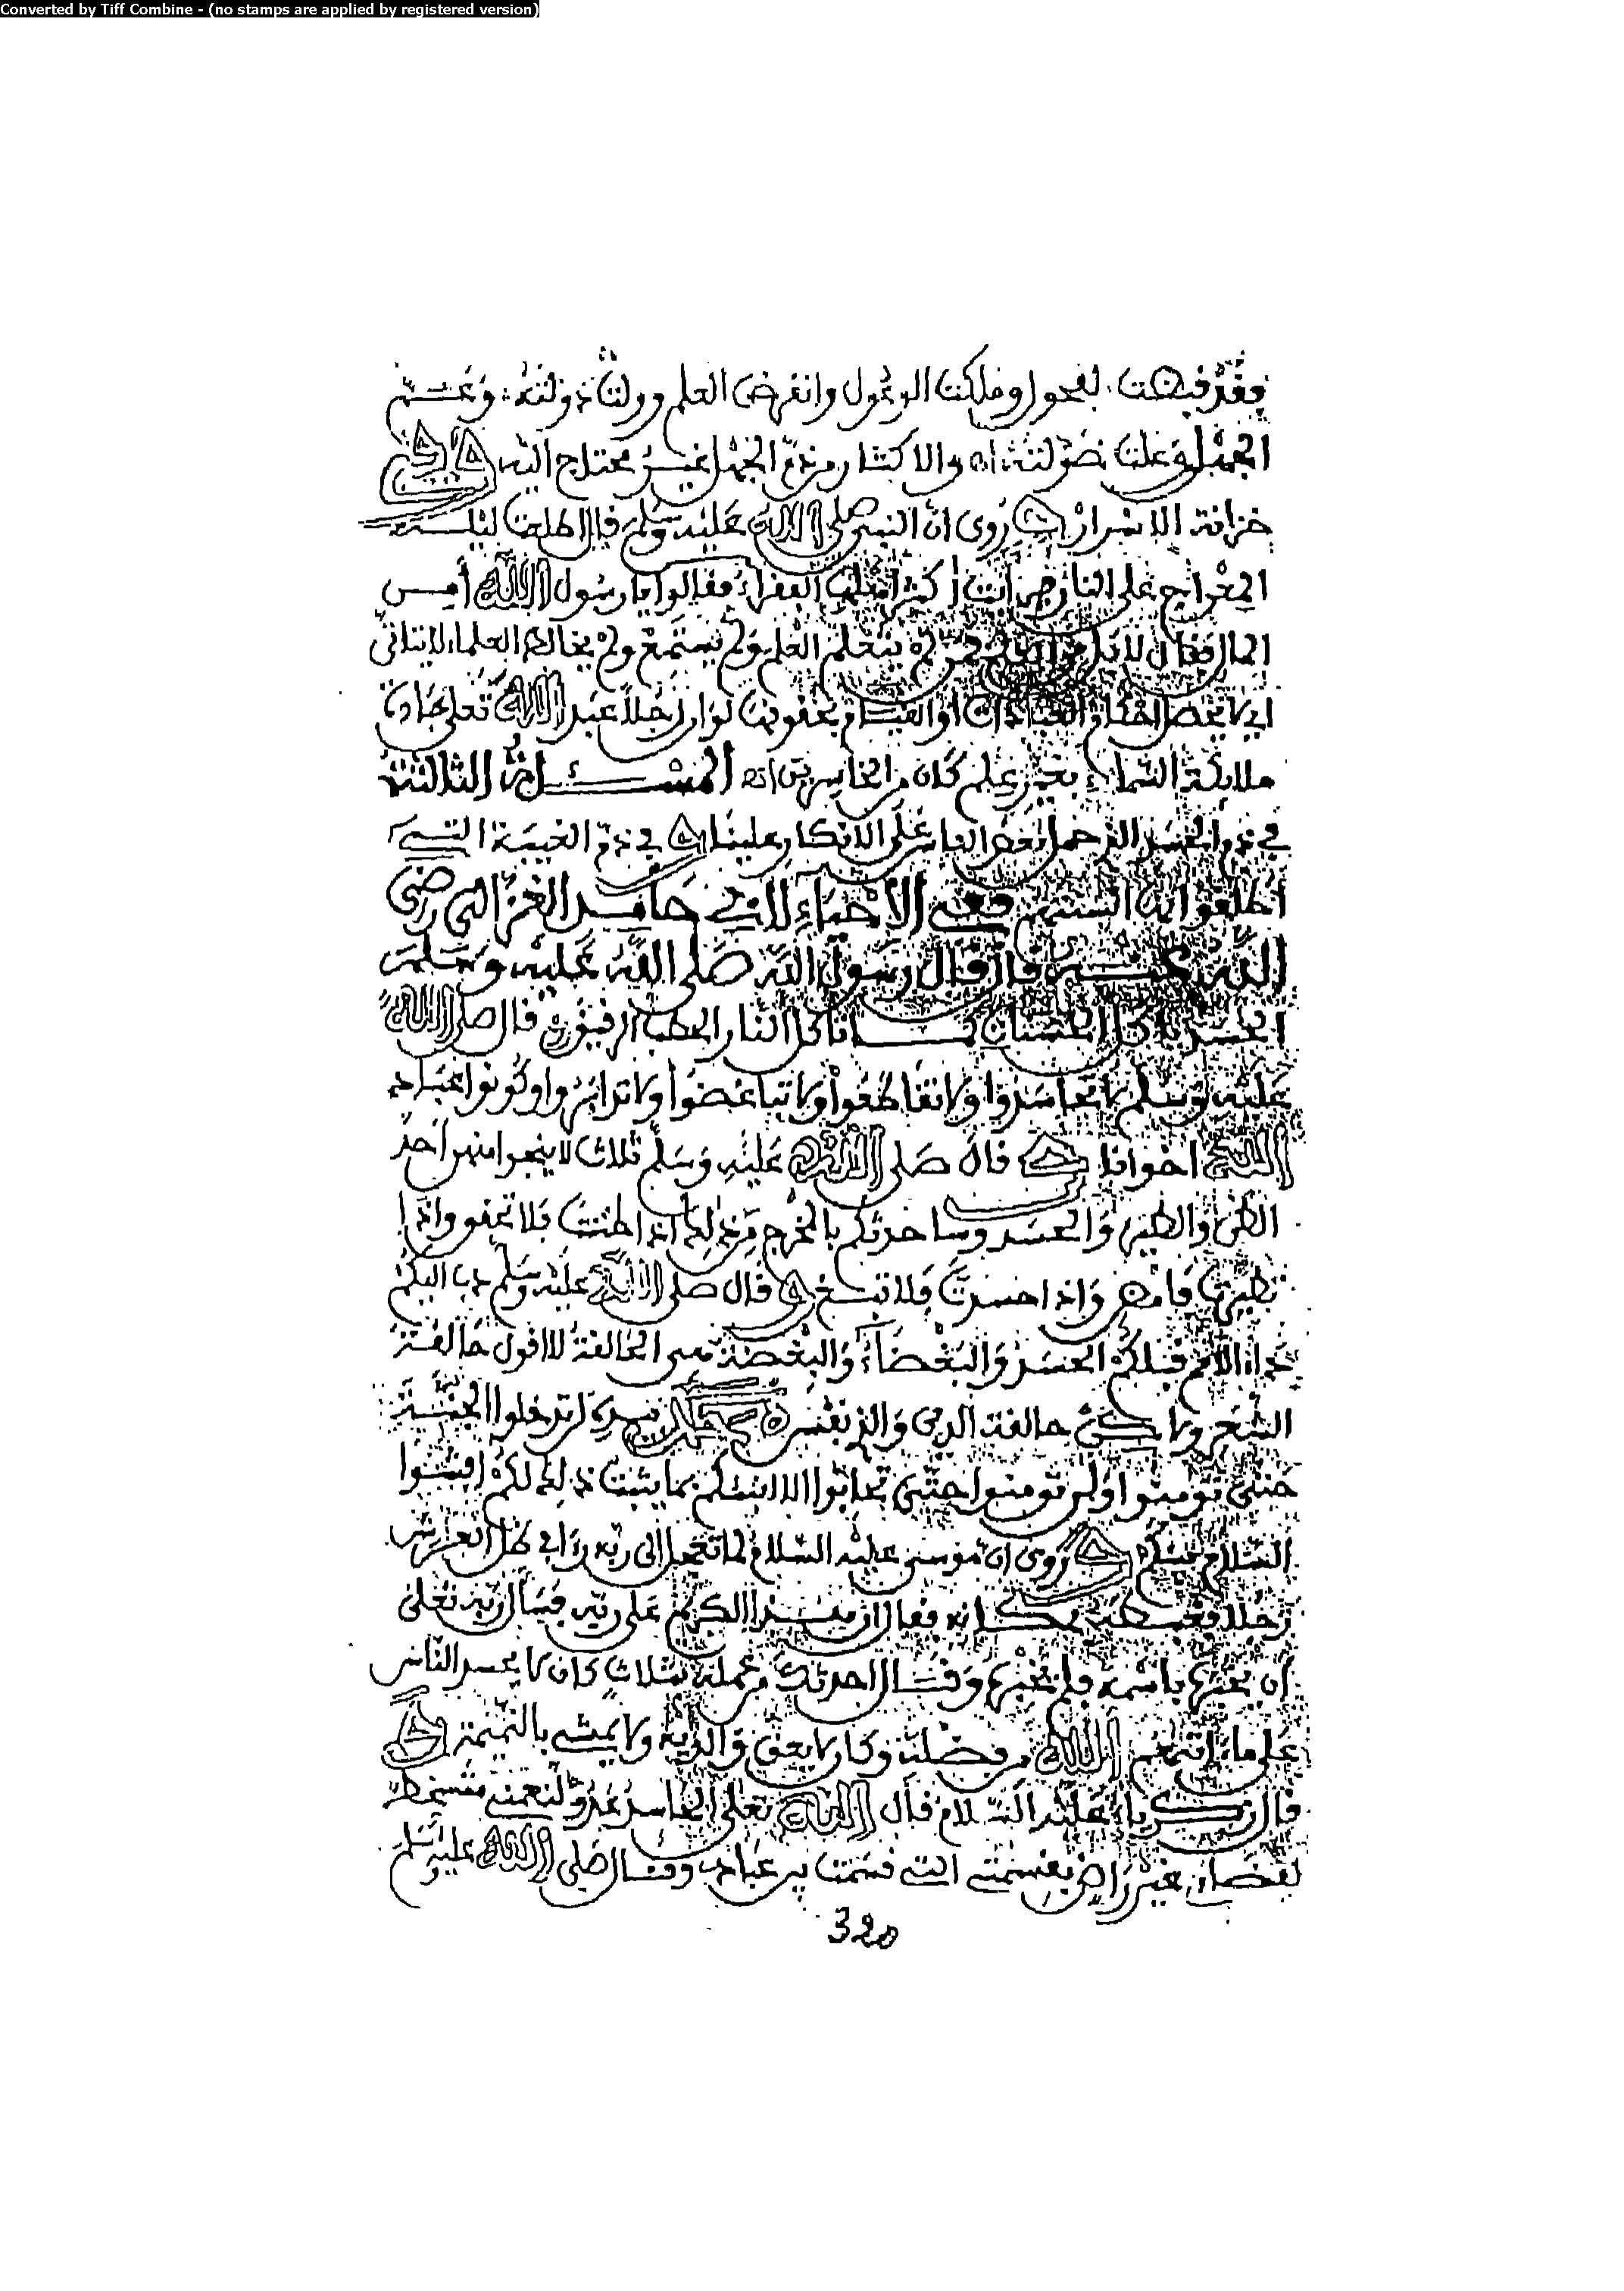 Converted by Tiff Combine - (no stamps are applied by registered version)
فقد قبضت الفحول وملكت الوعول وانقرض العلم وولت دولته وعم
الجهل وعلت صولته اه والاكثار من ذم الجهل غير محتاج اليه وفي
خزانة الاسرار روى ان النبي صلى الله عليه وسلم قال اطلعت ليلة
المعراج على النار فرأيت أكثر أهلها الفقراء فقالوا يا رسول الله أمن
المال فقال لا بل من العلم فمن لم يتعلم العلم ولم يستمع ولم يخالط العلماء لا يتاتى
له العبادات او القيام بحقوقها لو ان رجلا عبد الله تعلى عبادة
ملائكة السماء بغير علم كان من الخاسرين اه المسئلة الثالثة
في ذم الحسد الذي حمل بعض الناس على الانكار علينا في ذم الغيبة التي
أطلقوا بها السنتهم ففي الاحياء لابي حامد الغزالي رضي
الله عنه قال قال رسول الله صلى الله عليه وسلم
الحسد ياكل الحسنات كما تاكل النار الحطب الرقيق قال صلى الله
عليه وسلم لا تحاسدوا ولا تقاطعوا ولا تباغضوا ولا تدابروا وكونوا عباد
الله اخوانا قال صلى الله عليه وسلم ثلاث لا ينجو منهن أحد
الظن والطيرة والحسد وساحدثكم بالمخرج من ذلك اذا ظننت فلا تحقق واذا
تطيرت فامض واذا حسدت فلا تبغ قال صلى الله عليه وسلم دب اليكم
داء الامم قبلكم الحسد والبغضاء والبغضة هي الحالقة لا اقول حالقة
الشعر ولكن حالقة الدين والذي نفس محمد بيده لن تدخلوا الجنة
حتى تومنوا ولن تومنوا حتى تحابوا الا انبئكم بما يثبت ذلك لكم افشوا
السلام بينكم روى ان موسى عليه السلام لما تعجل الى ربه رأى في ظل العرش
رجلا فغبطه بمكانه فقال ان هذا لكريم على ربه فسأل ربه تعلى
ان يخبره باسمه فلم يخبره وقال احدثك من عمله بثلاث كان لا يحسد الناس
على ما اتاهم الله من فضله وكان لا يعق والديه ولا يمشي بالنميمة
قال زكرياء عليه السلام قال الله تعلى الحاسد عدو لنعمتي متسخط
لقضاءي غير راض بقسمتي التي قسمت بين عبادي وقال صلى الله عليه وسلم
320